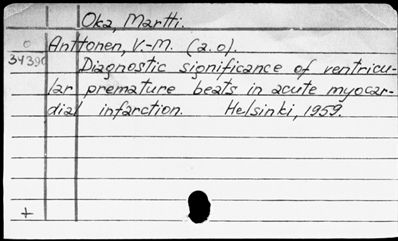 Oka, Martti.
Anttonen, V.-M. (a.o).
34390
Diagnostic significance of ventricu-
lar premature beats in acute myocar-
dial infarction. Helsinki, 1959.
+